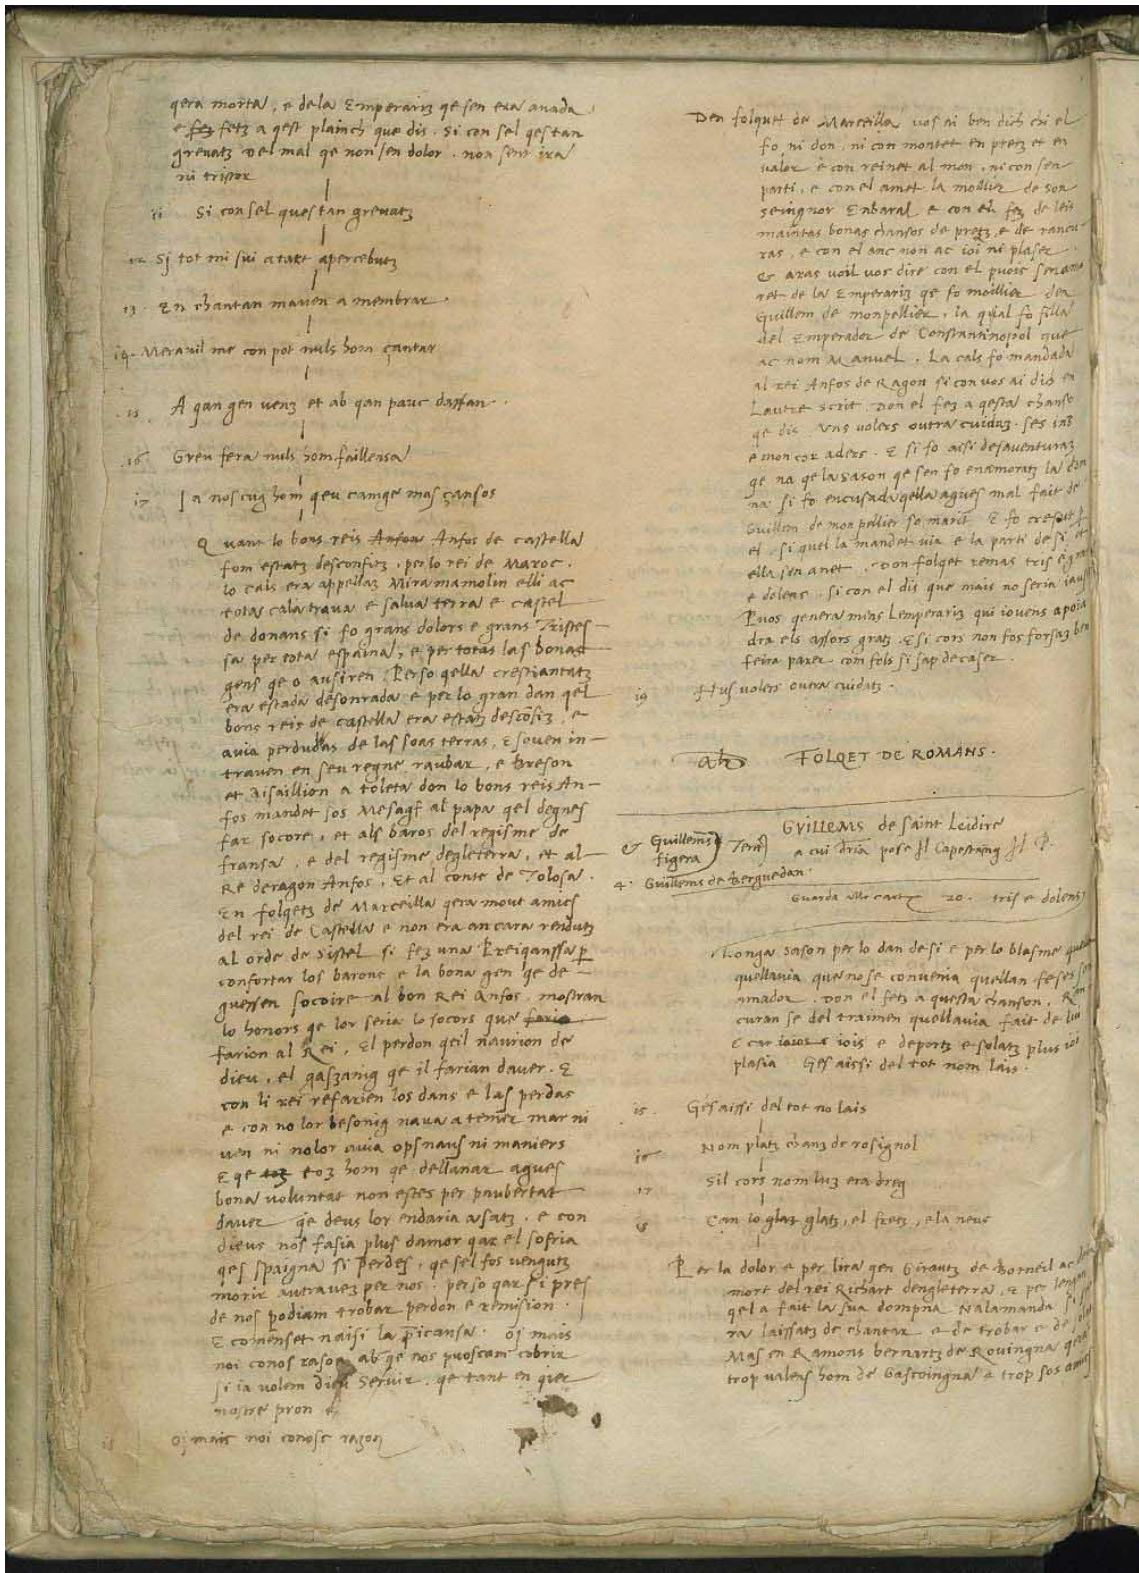 qera morta, e dela Emperariz qe sen era anada
e fez fetz a qest plainch que dis. Si con sel qes tan
grevatz del mal qe non sen dolor. non sent ira
ni tristor
11 Si con sel ques tan grevatz
12 Sj tot mi sui atart apercebutz
13. En chantan maven a membrar.
14. Meravil me con pot nuls hom çantar
15 A qan gen venz et ab qan pauc daffan.
16. Greu fera nuls hom faillensa
17 Ja nos cug hom qeu camge mas çansos
Quant lo bons reis Anfon Anfos de castella
fom estatz desconfitz. per lo rei de Maroc.
lo cals era appellaz Miramamolin elli ac
tota cala trava e salva terra e castel
de donans si fo grans dolors e grans Tristes-
sa per tota espaina, e per totas las bonas
gens qe o ausiren. Perso qella crestiantatz
era estada desonrada e per lo gran dan qel
bons reis de castella era estatz descõfiz, e
avia perdudas de las soas terras, E soven in-
traven en seu regne raubar, e breson
et Aisaillion a toleta don lo bons reis An-
fos mandet sos Mesagf al papa qel degnes
far socore, et als baros del regisme de
fransa, e del regisme degleterra, et al-
Re deragon Anfos. Et al conte de Tolosa.
En folqetz de Marceilla qera mout amics
del rei de Castella e non era ancara rendutz
al orde de Sistel si fez una Preiqanssa p
confortar los barons e la bona gen qe de-
guessen socoire al bon Rei Anfos. mostran
lo honors qe lor seria lo socors que faria
farion al Rei, El perdon qeil naurion de
dieu, el gaszanig qe il farian daver. E
con li rei refarien los dans e las perdas
e con no lor besonig nava a temer mar ni
ven ni nolor avia ops naus ni maniers
E qe toz toz hom qe dellanar agues
bona voluntat non estes per paubertat
daver qe deus lor endaria asatz. e con
dieus nos fasia plus damor qar el sofria
qes spaigna si perdes, qe sel fos vengutz
morir autravez per nos. perso qar si pres
de nos podiam trobar perdon e remision.
E comenset naisi la p̃icansa. Oj mais
noi conos rason ab qe nos puoscam cobrir
si ia volem dieu Servir. qe tant en qier
nostre pron &
18 Oj mais noi conosc razon
Den folquet de Marceilla vos ai ben dich chi el
fo, ni don, ni con montet en pretz et en
valor e con reinet al mon, ni con sen
parti, e con el amet la moillier de son
seingnor Enbaral e con el fez de leis
maintas bonas chansos de pretz, e de rancu-
ras, e con el anc non ac ioi ni plaser.
& aras voil vos dire con el puois senamo
ret de la Emperariz qe fo moillier den
Guillem de monpellier, la qual fo filla
del Emperador de Constantinopol que
ac nom Manuel. La cals fo mandada
al rei Anfos de Ragon si con vos ai dich en
Lautre scrit. Don el fez a qesta chanso
qe dis. Uns volers outra cuidaz. ses ins
e mon cor aders. E si fo aisi desaventuraz
qe na qe la sason qe sen fo enamoratz la don
na si fo encusada qella agues mal fait de
Guillem de monpellier so marit. E fo cresut p
el, si quel la mandet via e la parti de si, et
ella sen anet. Don folqet remas tris e gram
e dolens. si con el dis que mais no seria iauss
Puos qenera mens Lemperariz qui iovens a poia
dra els assors gratz. E si cors non fos forsaz ben
feira parer com fols si sap decaser.
19 Hus volers outra cuidatz.
FOLQET DE ROMANS.
GVILLEMS de Saint Leidire
a cui dria pose il Capestaing
& Guillems figera
4. Guillems de Berguedan.
Guarda alle carte 20. tris e dolens
Longa sason per lo dan de si e per lo blasme que
quellavia que no se convenia quellan feses son
amador. Don el fetz a questa chanson, Ran
curan se del traimen quellavia fait de lui
E car iois e deportz e solatz plus
plasia Ges aissi del tot nom lais.
15. Ges aissi del tot no lais
16 Nom platz chanz de rosignol
17 Sil cors nom luz era dreg
18 Can lo glaz glatz, el fretz, ela neus
Per la dolor e per lira qen Girautz de Borneil ac
mort del rei Richart dengleterra, E per lengan
qel a fait la sua dompna Nalamanda si se
ra laissatz de chantar e de trobar e de
Mas en Ramons bernartz de Rovingna qera
trop valens hom de Gascoingna e trop sos amics